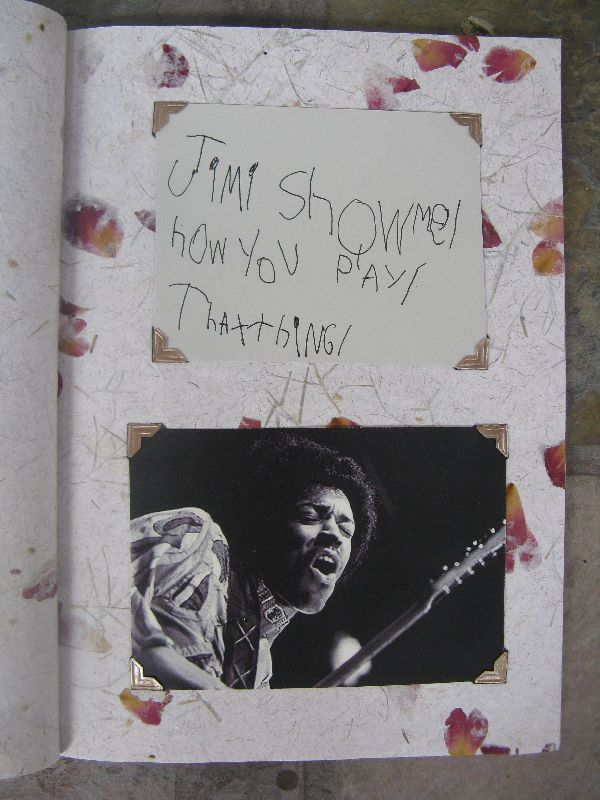 JiMi ShOWMe!
hOW YOU PlAY!
ThAtthiNG!